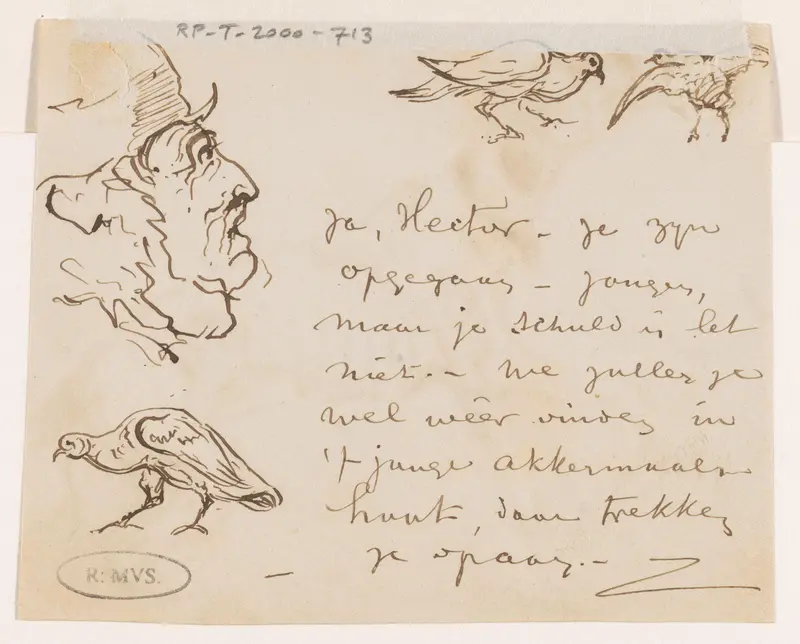 RP-T-2000-713
Ja, Hector - ze zyn
opgegaan - jongen,
maar je schuld is het
niet. - We zullen ze
wel wêer vinden in
't jonge akkermaals
hout, daar trekken
ze opaan. -
R: MVS.